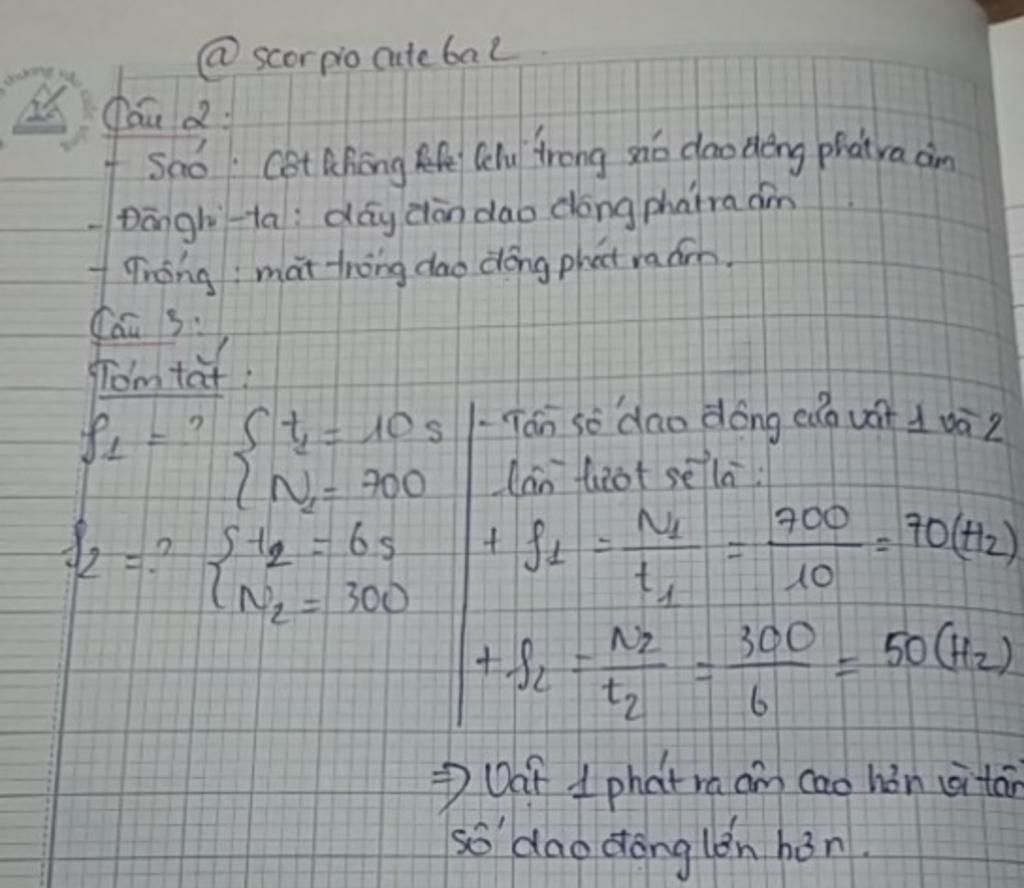 @ scorpio cute 6a2
Câu 2:
- Sáo: Cột không khí trong sáo dao động phát ra âm
- Đàn ghi-ta: dây đàn dao động phát ra âm
- Trống: mặt trống dao động phát ra âm.
Câu 3:
Tóm tắt:
f1 = ? { t1 = 10s
N1 = 700
f2 = ? { t2 = 6s
N2 = 300
- Tần số dao động của vật 1 và 2
lần lượt sẽ là:
+ f1 = N1/t1 = 700/10 = 70(Hz)
+ f2 = N2/t2 = 300/6 = 50(Hz)
=> Vật 1 phát ra âm cao hơn vì tần
số dao động lớn hơn.